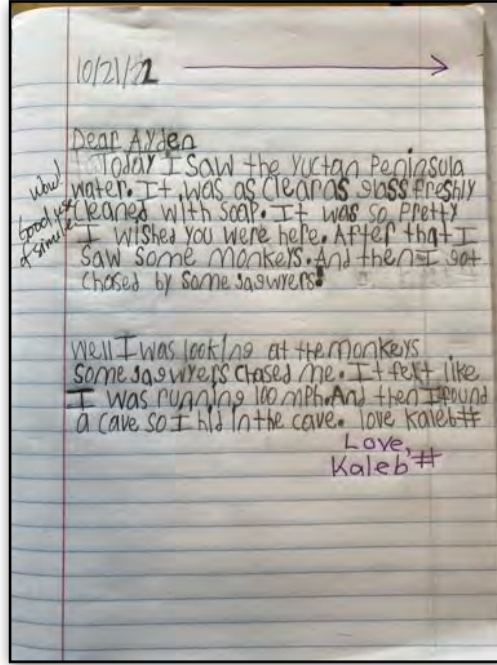 10/21/22
Dear Ayden
Today I saw the yuctan Peninsula
water. It was as clear as gass freshly
cleaned with soap. It was so pretty
I wished you were here. After that I
saw some monkeys. And then I got
chosed by some jagwyers!
Wow!
Good use
of simile
Well I was looking at the monkeys
some jagwyers chased me. It felt like
I was running 100 mph. And then I found
a cave so I hid in the cave. love Kaleb#
Love,
Kaleb #